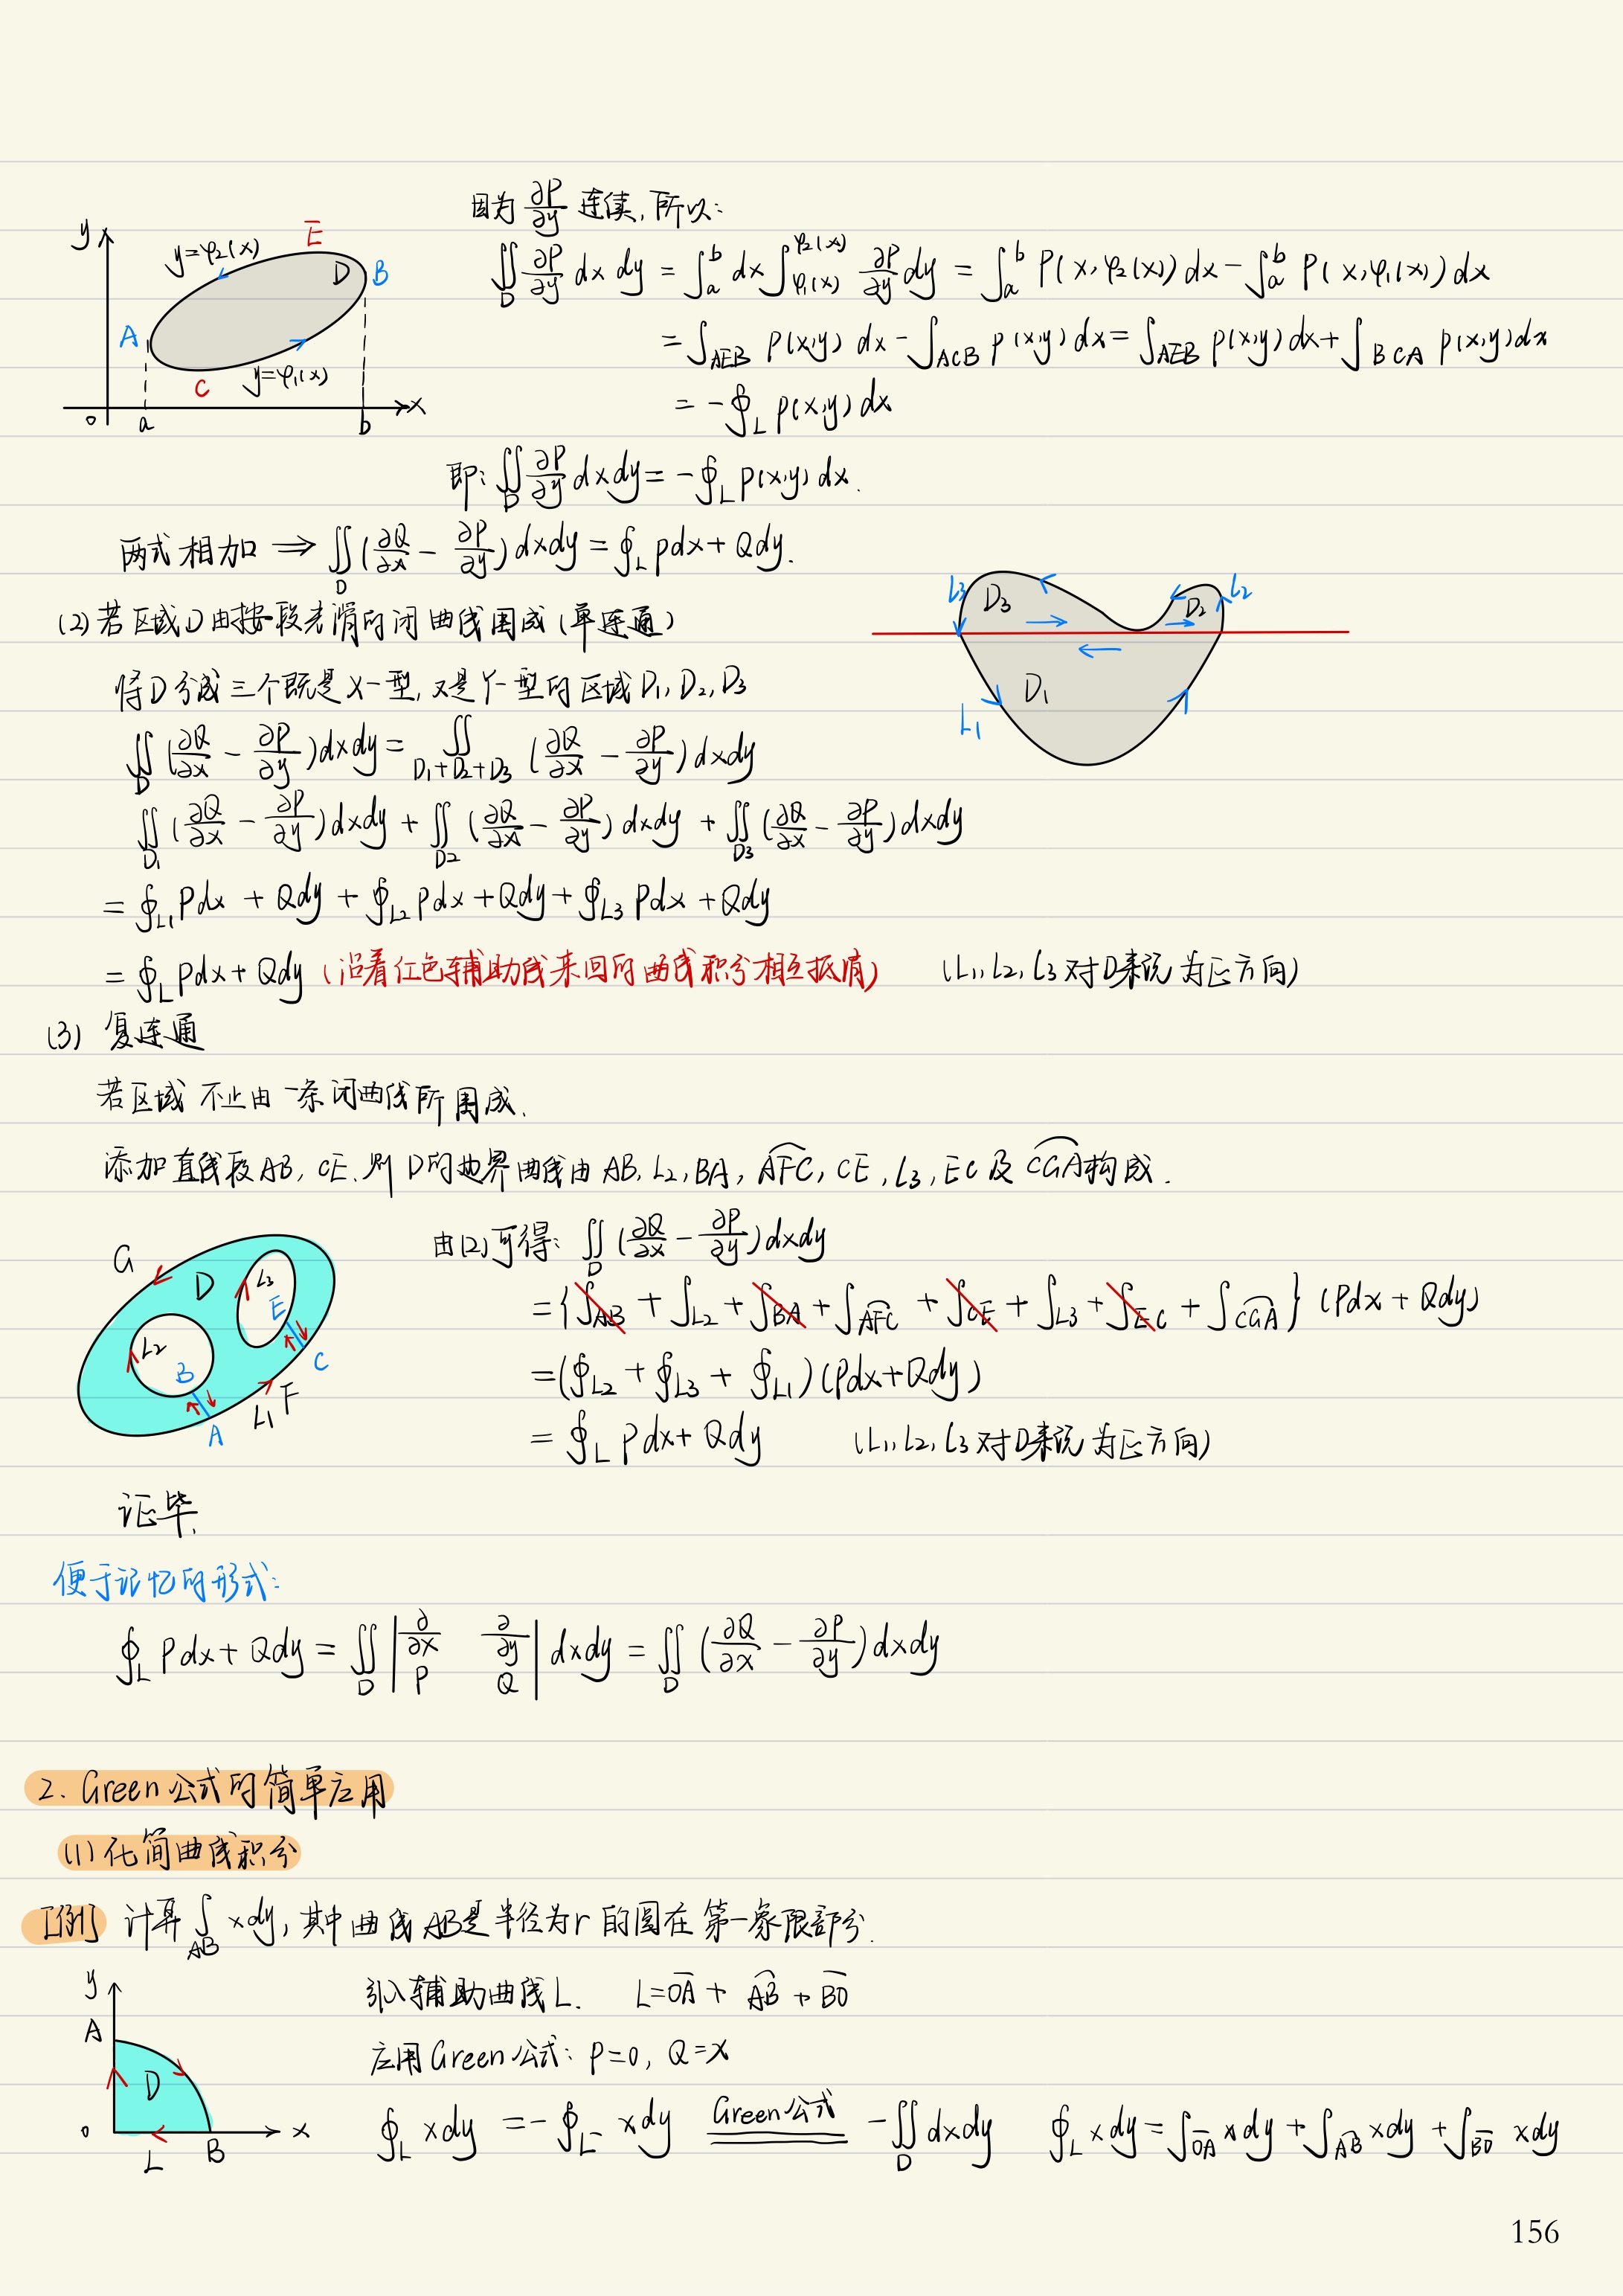 因为 ∂P/∂y 连续,所以:
∬_D ∂P/∂y dx dy = ∫_a^b dx ∫_{φ₁(x)}^{φ₂(x)} ∂P/∂y dy = ∫_a^b P(x,φ₂(x)) dx - ∫_a^b P(x,φ₁(x)) dx
= ∫_{AEB} P(x,y) dx - ∫_{ACB} P(x,y) dx = ∫_{AEB} P(x,y) dx + ∫_{BCA} P(x,y) dx
= -∮_L P(x,y) dx
y
y=φ₂(x)
E
D
B
A
C
y=φ₁(x)
o a b x
即: ∬_D ∂P/∂y dxdy = -∮_L P(x,y) dx.
两式相加 ⟹ ∬_D (∂Q/∂x - ∂P/∂y) dxdy = ∮_L Pdx + Qdy.
(2) 若区域D由按段光滑的闭曲线围成(单连通)
L3 D3 D2 L2
D1
L1
将D分成三个既是X-型,又是Y-型的区域D₁, D₂, D₃
∬_D (∂Q/∂x - ∂P/∂y) dxdy = ∬_{D₁+D₂+D₃} (∂Q/∂x - ∂P/∂y) dxdy
∬_{D₁} (∂Q/∂x - ∂P/∂y) dxdy + ∬_{D2} (∂Q/∂x - ∂P/∂y) dxdy + ∬_{D3} (∂Q/∂x - ∂P/∂y) dxdy
= ∮_{L1} Pdx + Qdy + ∮_{L2} Pdx + Qdy + ∮_{L3} Pdx + Qdy
= ∮_L Pdx + Qdy (沿着红色辅助线来回的曲线积分相互抵消) (L₁, L₂, L₃对D来说为正方向)
(3) 复连通
若区域不止由一条闭曲线所围成.
添加直线段AB, CE.则D的边界曲线由AB, L₂, BA, A͡FC, CE, L₃, EC及C͡GA构成.
由(2)可得: ∬_D (∂Q/∂x - ∂P/∂y) dxdy
= {∫_{AB} + ∫_{L2} + ∫_{BA} + ∫_{A͡FC} + ∫_{CE} + ∫_{L3} + ∫_{EC} + ∫_{C͡GA}} (Pdx + Qdy)
= (∮_{L2} + ∮_{L3} + ∮_{L1}) (Pdx + Qdy)
= ∮_L Pdx + Qdy (L₁, L₂, L₃对D来说为正方向)
G D L3
E
L2
B C
L1 F
A
证毕.
便于记忆的形式:
∮_L Pdx + Qdy = ∬_D | ∂/∂x ∂/∂y ; P Q | dxdy = ∬_D (∂Q/∂x - ∂P/∂y) dxdy
2. Green公式的简单应用
(1) 化简曲线积分
[例] 计算 ∫_{AB} xdy, 其中曲线AB是半径为r的圆在第一象限部分.
引入辅助曲线L. L = O̅A̅ + A͡B + B̅O̅
应用Green公式: P=0, Q=x
y
A
D
o L B x
∮_L xdy = -∮_{L⁻} xdy ==Green公式== -∬_D dxdy ∮_L xdy = ∫_{O̅A̅} xdy + ∫_{A͡B} xdy + ∫_{B̅O̅} xdy
156